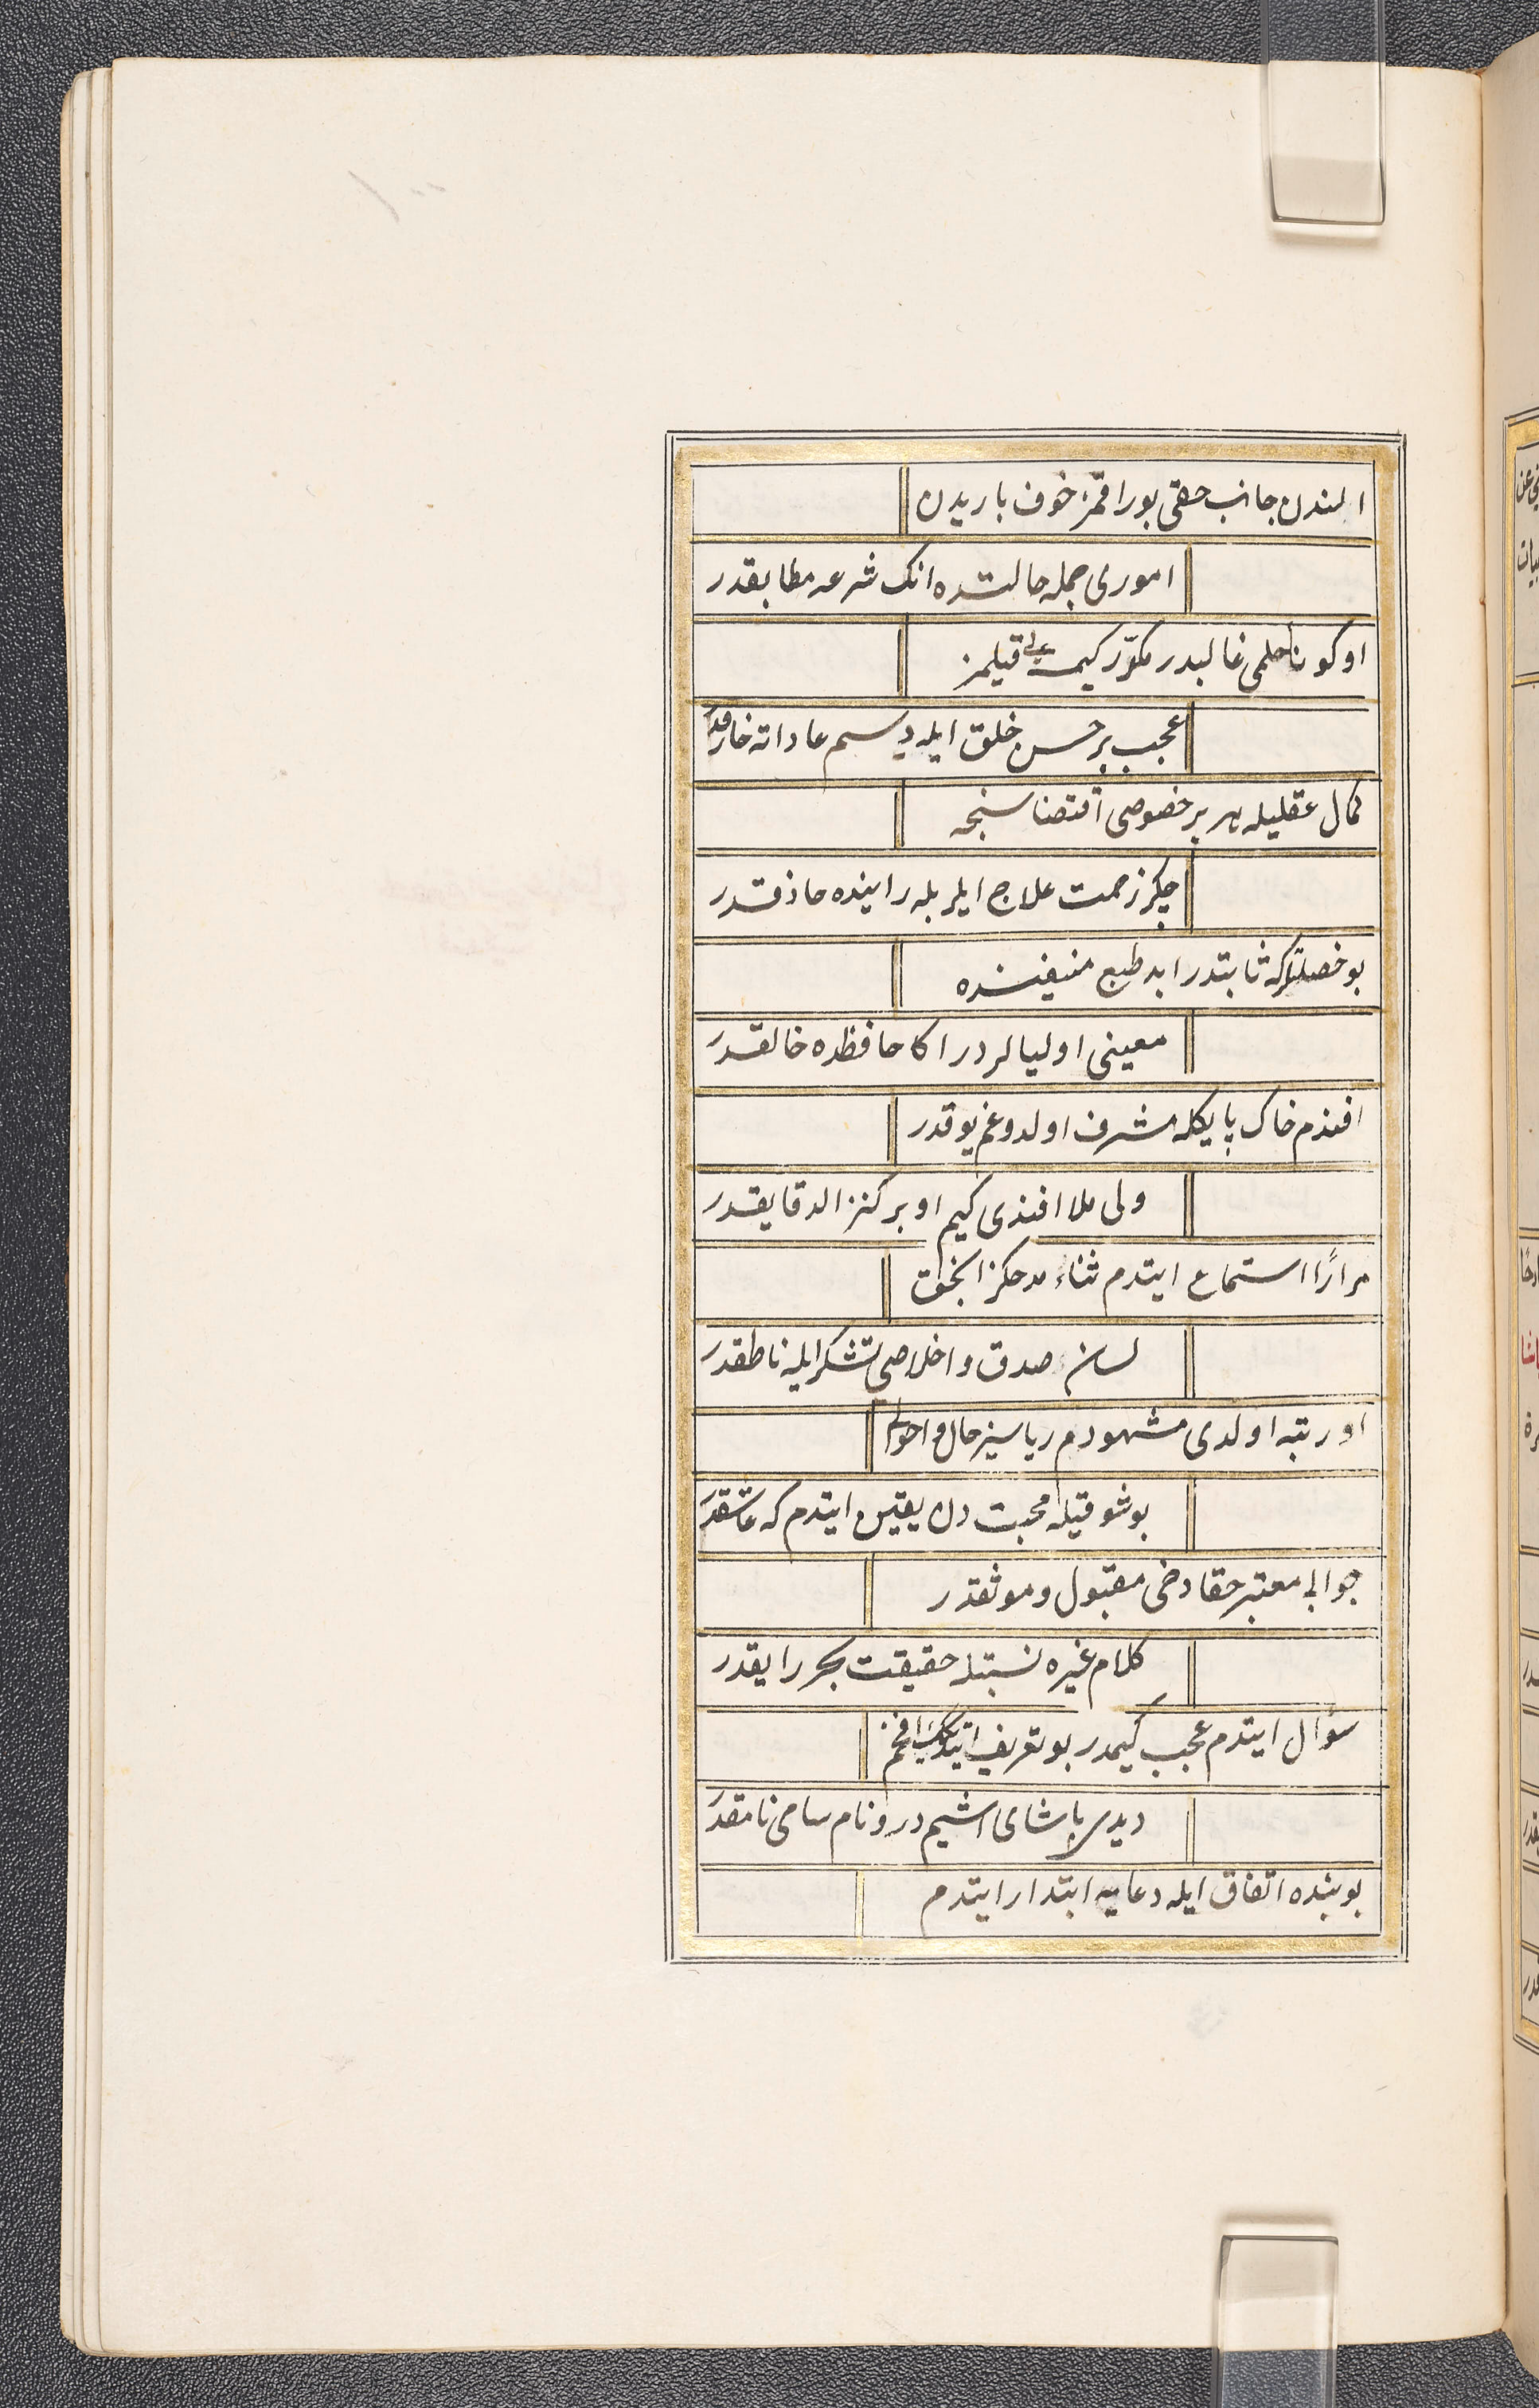 المندن جانب حقی بوراقمز خوف باریدن
اموری جمله حالتده انک شرعه مطابقدر
اوکونا حلمی غالبدر مکور کیمسه‌یی قیلمز
عجب بر حسن خلق ایله دی سم عاداته خارقدر
کمال عقلیله هر بر خصوصی اقتضاسنجه
چکر زحمت علاج ایلر بله راینده حاذقدر
بو خصلتلرکه ثابتدر ابد طبع منیفنده
معینی اولیالردر اکا حافظده خالقدر
افندم خاک پایکله مشرف اولدوغم یوقدر
ولی ملا افندی کیم او بر کنز الدقایقدر
مرارًا استماع ایتدم ثناء مدحکز انجق
لسان صدق واخلاصی تشکر ایله ناطقدر
اورتبه اولدی مشهودم ریاسز حال واحوالی
بوشوقیله محبت دن یقین ایتدم که عاشقدر
جوابی معتبر حقا دخی مقبول وموثقدر
کلام غیره نسبتله حقیقت بحر رایقدر
سؤال ایتدم عجب کیمدر بو تعریف ایتدیکک افخم
دیدی پاشای اشیم در و نام سامی نامقدر
بوبنده اتفاق ایله دعایه ابتدار ایتدم